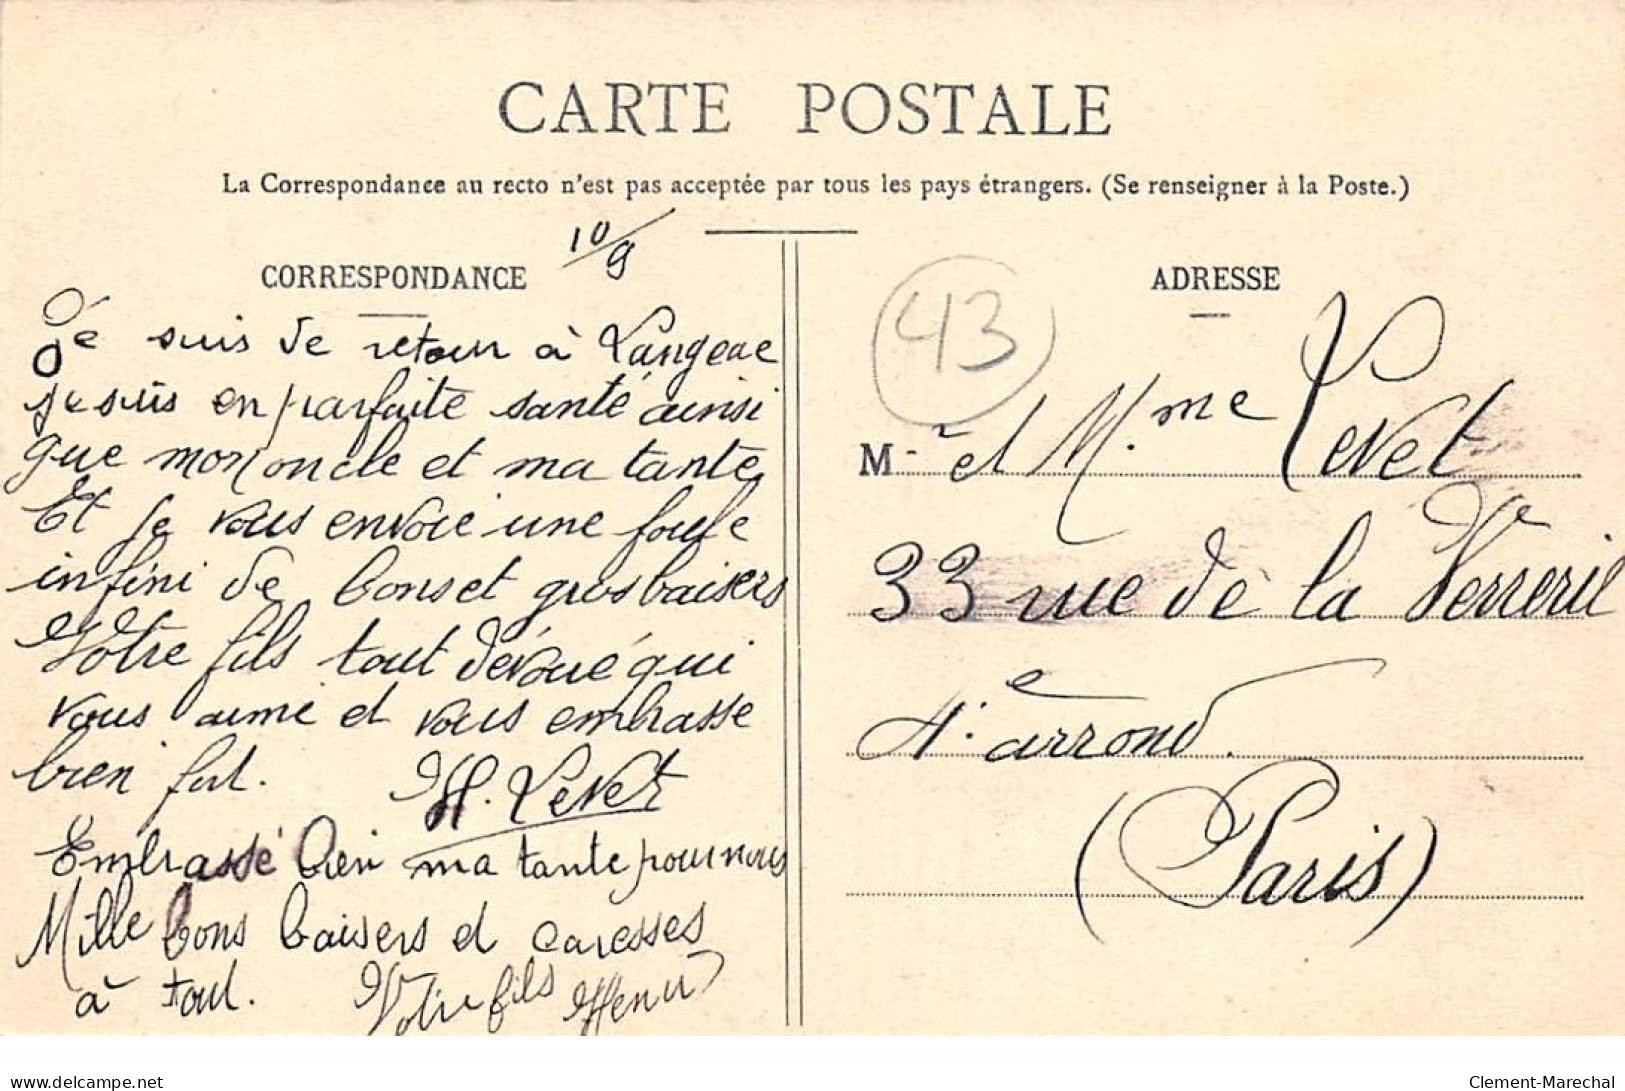 CARTE POSTALE
La Correspondance au recto n'est pas acceptée par tous les pays étrangers. (Se renseigner à la Poste.)
10/9
CORRESPONDANCE
Je suis de retour à Langeac
je suis en parfaite santé ainsi
que mon oncle et ma tante
Et je vous envoie une foule
infini de bons et gros baisers
Votre fils tout dévoué qui
vous aime et vous embrasse
bien fort.
H. Levet
Embrassé bien ma tante pour nous
Mille bons baisers et caresses
à tout.
Votre fils Henri
ADRESSE
43
M. et M.me Levet
33 rue de la Verrerie
4.e arrond.
(Paris)
delcampe.net
Clement-Marechal